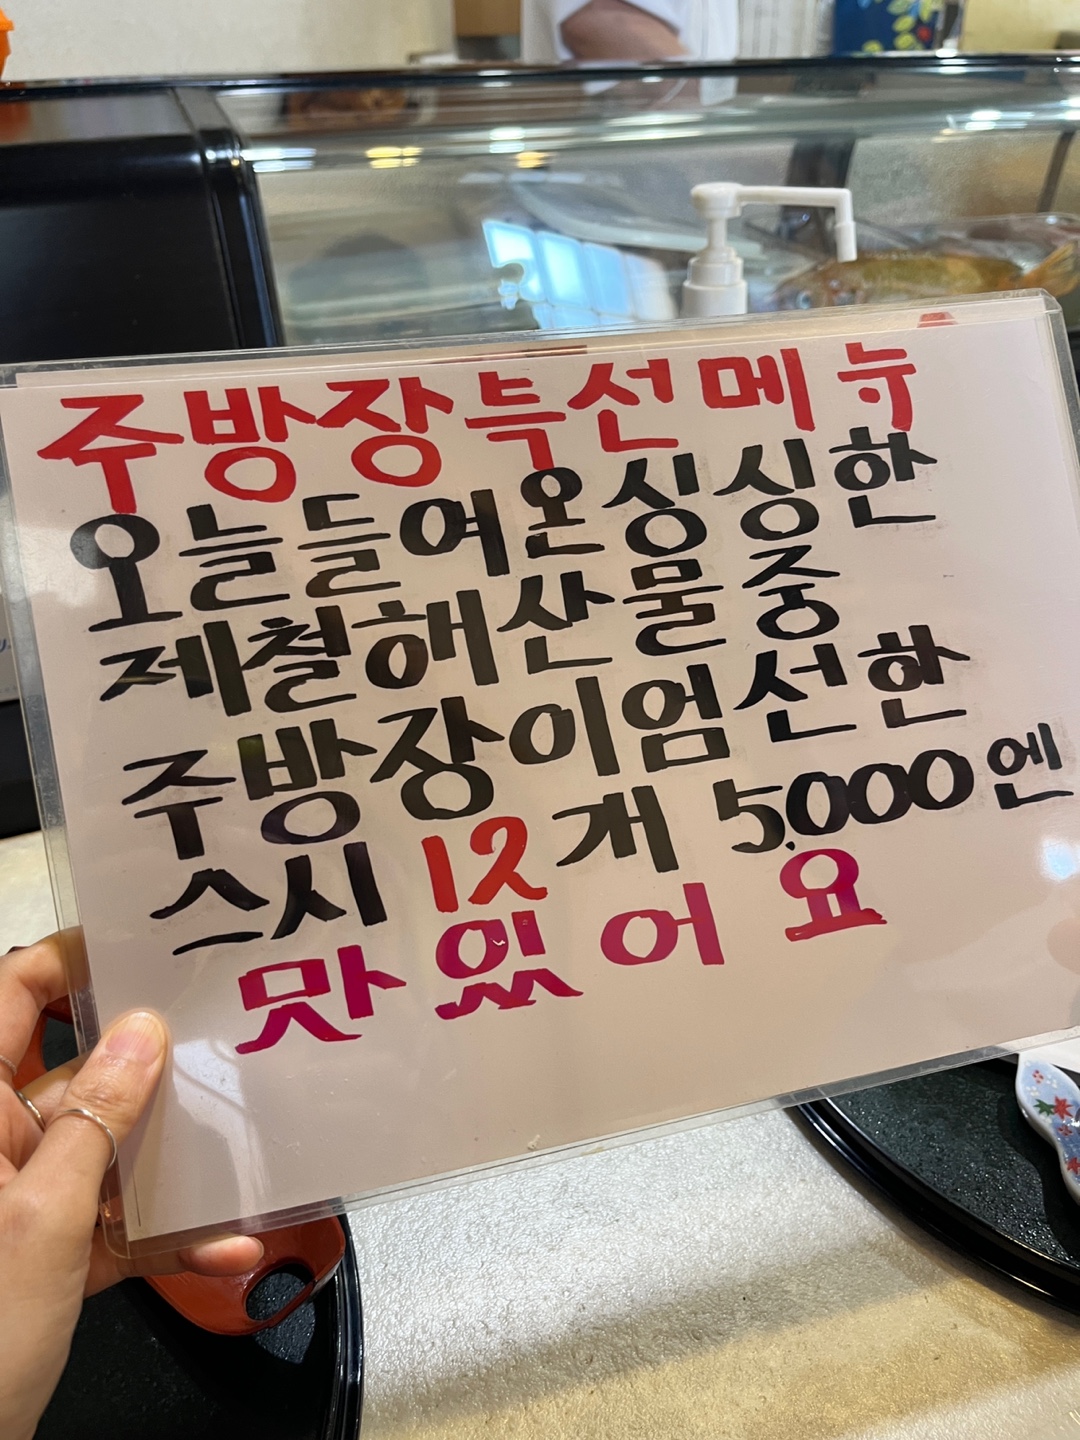 주방장특선메뉴
오늘들여온싱싱한
제철해산물중
주방장이엄선한
스시12개 5,000엔
맛있어요